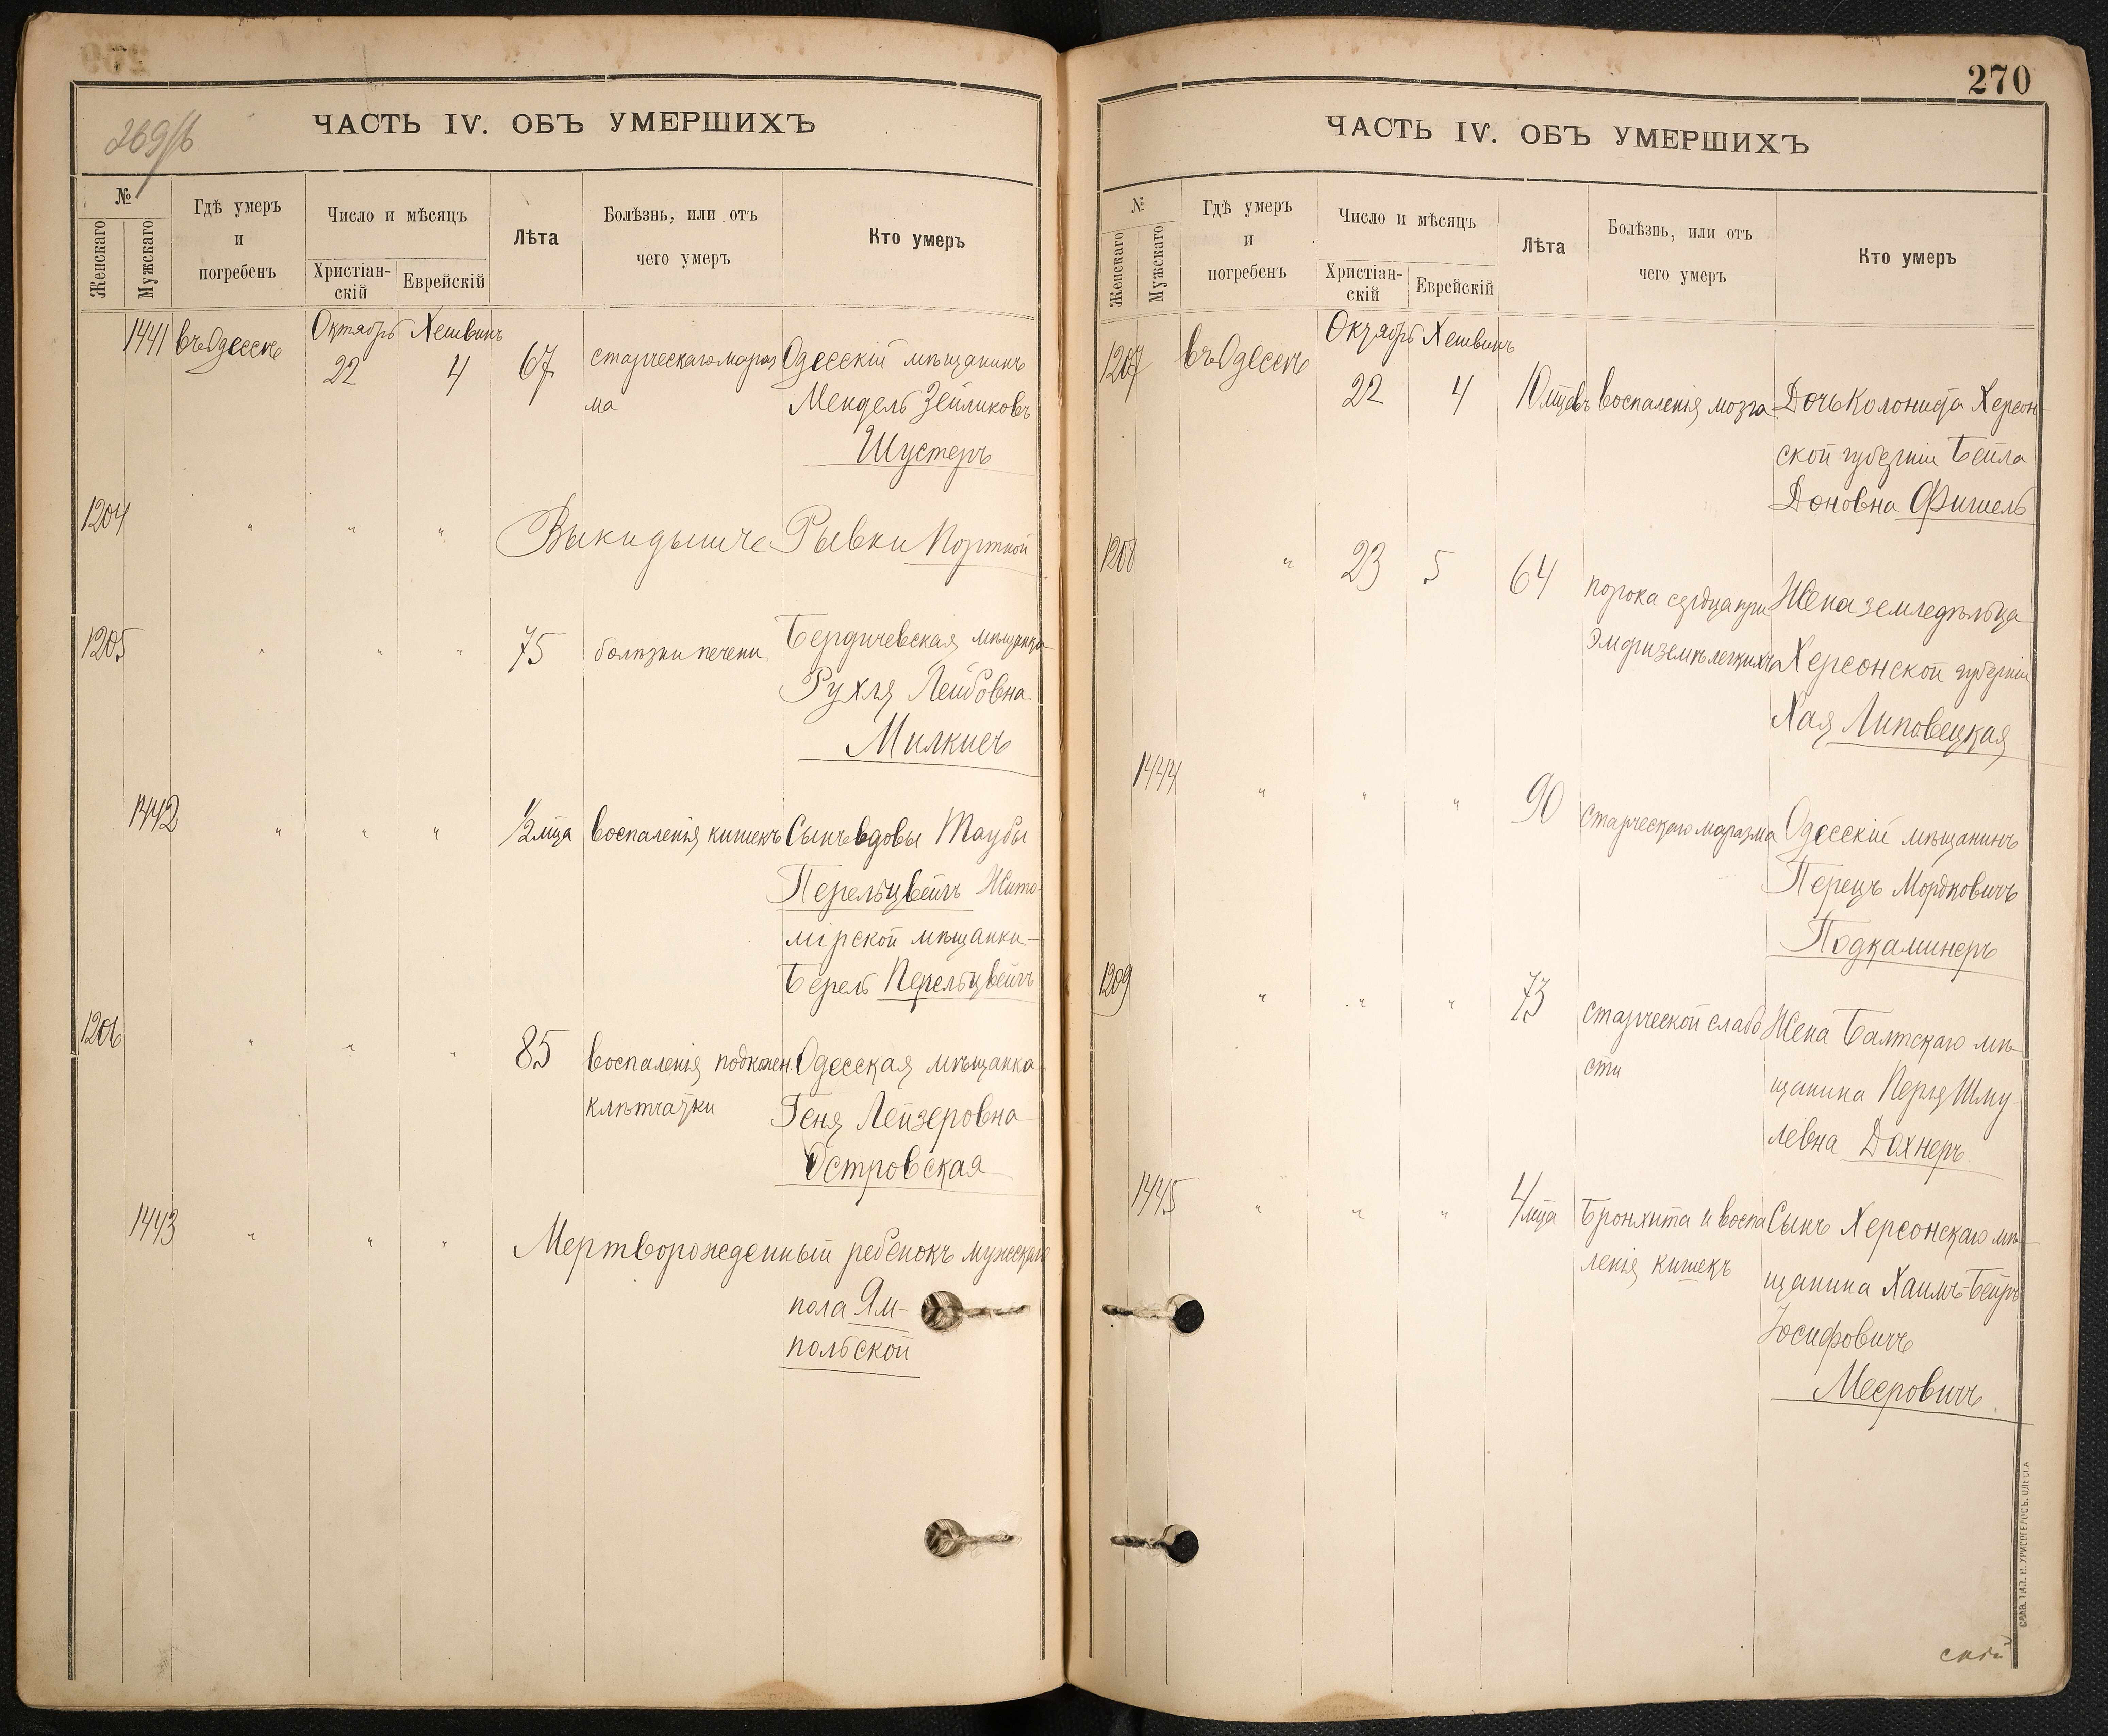 269/б
ЧАСТЬ IV. ОБЪ УМЕРШИХЪ
№
Женскаго
Мужскаго
Гдѣ умеръ
и
погребенъ
Число и мѣсяцъ
Христіан-
скій
Еврейскій
Лѣта
Болѣзнь, или отъ
чего умеръ
Кто умеръ
1441 въ Одессѣ Октябрь Хешвинъ
22 4 67 старческаго мараз Одесскій мѣщанинъ
ма Мендель Зейликовъ
Шустеръ
1204 " " " Выкидышъ Рывки Портной
1205 " " " 75 болѣзни печени Бердичевская мѣщанка
Рухля Лейбовна
Милкисъ
1442 " " " 1/2 мца воспаленія кишекъ Сынъ вдовы Таубы
Перельцвейгъ Жито-
мірской мѣщанки-
Берель Перельцвейгъ
1206 " " " 85 воспаленія подкожн. Одесская мѣщанка
клѣтчатки Геня Лейзеровна
Островская
1443 " " " Мертворожденный ребенокъ мужескаго
пола Ям-
польской
270
ЧАСТЬ IV. ОБЪ УМЕРШИХЪ
№
Женскаго
Мужскаго
Гдѣ умеръ
и
погребенъ
Число и мѣсяцъ
Христіан-
скій
Еврейскій
Лѣта
Болѣзнь, или отъ
чего умеръ
Кто умеръ
1207 въ Одессѣ Октябрь Хешвинъ
22 4 10 мцевъ воспаленія мозга Дочь Колониста Херсон-
ской губерніи Бейла
Доновна Фишель
1208 " 23 5 64 порока сердца при Жена земледѣльца
эмфиземѣ легкихъ Херсонской губерніи
Хая Липовецкая
1444 " " " 90 старческаго маразма Одесскій мѣщанинъ
Перецъ Мордковичъ
Подкаминеръ
1209 " " " 73 старческой слабо Жена Балтскаго мѣ-
сти щанина Перля Шму-
левна Дохнеръ
1445 " " " 4 мца Бронхита и воспа Сынъ Херсонскаго мѣ-
ленія кишекъ щанина Хаимъ-Бейръ
Іосифовичъ
Мееровичъ
скій